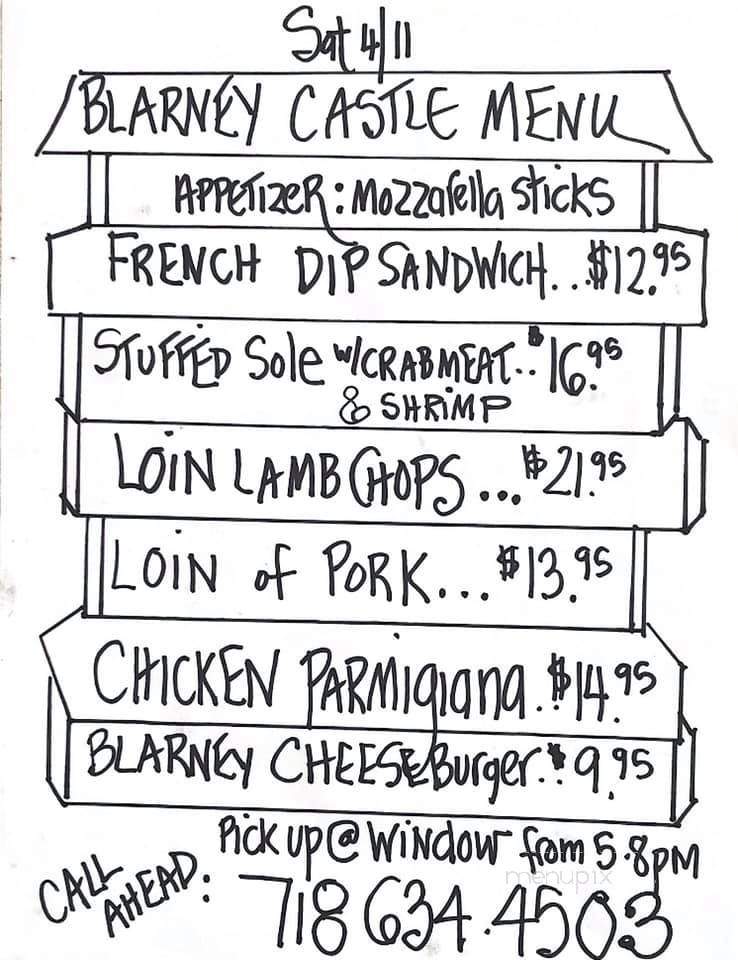 Sat 4/11
BLARNEY CASTLE MENU
APPETIZER: MOZZARELLA STICKS
FRENCH DIP SANDWICH...$12.95
STUFFED SOLE W/CRABMEAT..$16.95
& SHRIMP
LOIN LAMB CHOPS...$21.95
LOIN of PORK...$13.95
CHICKEN PARMIGIANA.$14.95
BLARNEY CHEESEBurger.$9.95
Pick up@Window from 5-8PM
CALL AHEAD: 718 634.4503
menupix